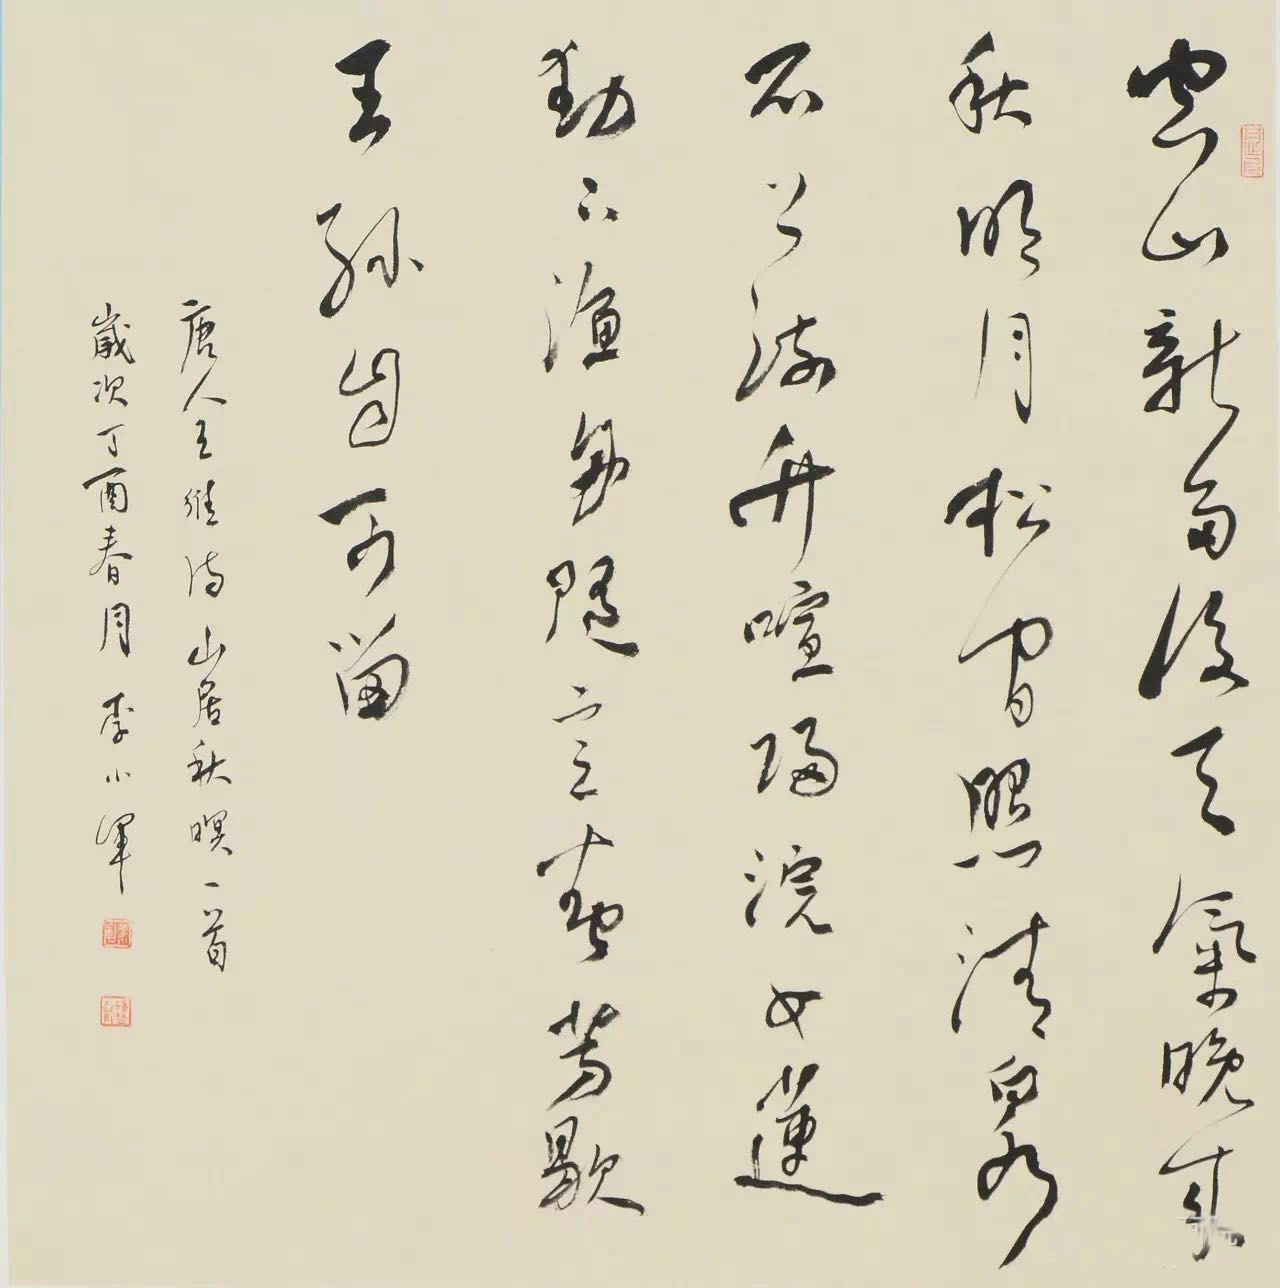 空山新雨後天氣晚來
秋明月松間照清泉
石上流竹喧歸浣女蓮
動下漁舟隨意春芳歇
王孫自可留
唐人王維詩山居秋暝一首
歲次丁酉春月 李小軍